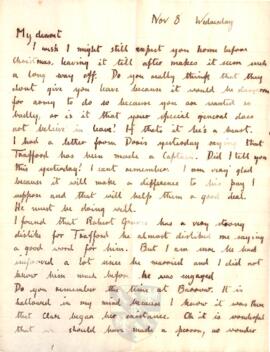 Nov 8 Wednesday
My dearest
I wish I might still expect you home before
Christmas, leaving it till after makes it seem such
a long way off. Do you really think that they
dont give you leave because it would be dangerous
for army to do so because you are wanted so
badly, or is it that your special general does
not believe in leave! If thats it he's a beast.
I had a letter from Doris yesterday saying that
Trafford has been made a Captain. Did I tell you
this yesterday? I cant remember. I am very glad
because it will make a difference to his pay I
suppose and that will help them a good deal.
He must be doing well.
I found that Robert has a very strong
dislike for Trafford he almost disliked me saying
a good word for him. But I am sure he had
improved a lot since he married and I did not
know him much before he was engaged
Do you remember the time at It is
hallowed in my mind because I know it was there
that Clare began her existance. Oh it is wonderful
that we should have made a person, no wonder